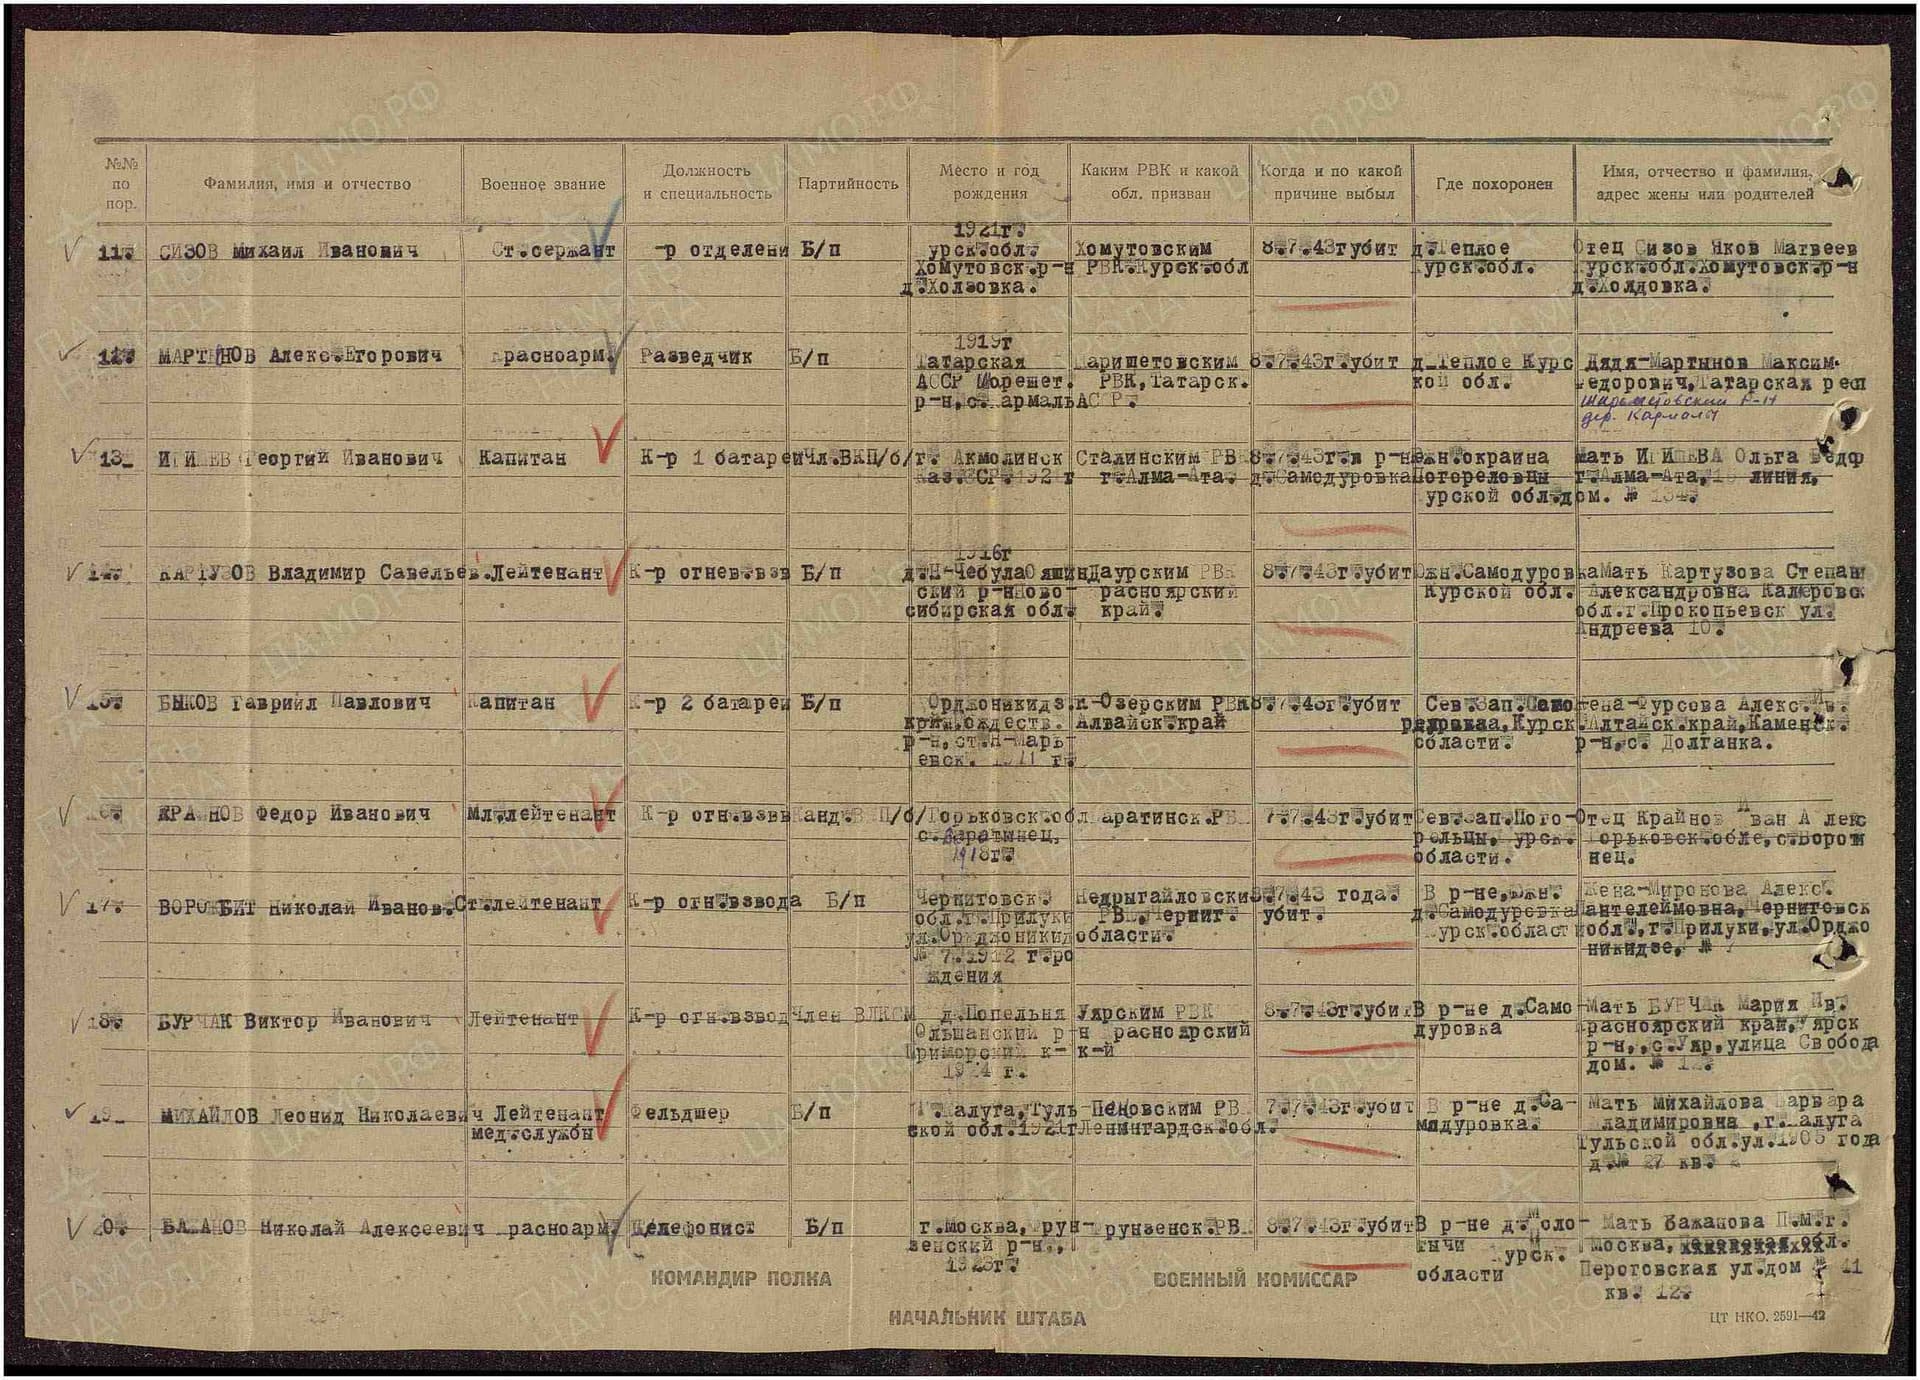 №№ по пор.
Фамилия, имя и отчество
Военное звание
Должность и специальность
Партийность
Место и год рождения
Каким РВК и какой обл. призван
Когда и по какой причине выбыл
Где похоронен
Имя, отчество и фамилия, адрес жены или родителей
11. СИЗОВ Михаил Иванович
Ст.сержант
-р отделени
Б/п
1921г.
урск.обл.
Хомутовск.р-н
д.Холзовка.
Хомутовским
РВК.Курск.обл
8.7.43г убит
д.Теплое
урск.обл.
Отец Сизов Яков Матвеев
урск.обл.Хомутовск.р-н
д.Холдовка.
12. МАРТЫНОВ Алекс.Егорович
расноарм.
Разведчик
Б/п
1919г
Татарская
АССР Шорешет.
р-н,с. армаль
Таришетовским
РВК,Татарск.
АССР.
8.7.43г.убит
д.Теплое Курс
кой обл.
Дядя-Мартынов Максим
едорович,Татарская респ
Шарыметовский р-н
дер. Кармалы
13. ИГИШЕВ Георгий Иванович
Капитан
К-р 1 батареи
Чл.ВКП/б/
г. Акмолинск
Каз.ССР.1921 г
Сталинским РВК
г.Алма-Ата.
8.7.43г.в р-не
д.Самодуровка
жн.окраина
Погореловцы
урской обл.
мать ИГИШЕВА Ольга Федф
г.Алма-Ата,10 линия,
дом. № 134.
14. КАРТУЗОВ Владимир Савельев.
Лейтенант
К-р огнев.взв
Б/п
1916г
д.Н-Чебула Ояшин
ский р-н Ново-
сибирская обл.
Даурским РВК
расноярский
край.
8.7.43г.убит
Южн.Самодуровка
Курской обл.
Мать Картузова Степани
Александровна Кемеровс
обл.г.Прокопьевск ул.
Андреева 10.
15. БЫКОВ Гавриил Павлович
Капитан
К-р 2 батареи
Б/п
Орджоникидз.
край. ождеств.
р-н,ст.Н-Марь-
евск. 1911 г.
к-Озерским РВК
Алвайск.край
8.7.43г.убит
Сев.Зап.Само
Курск.
области.
ена-Фурсова Алекс.Ив.
Алтайск.край,Каменск.
р-н,с. Долганка.
16. КРАЙНОВ Федор Иванович
Мл.лейтенант
К-р огн.взв
Канд.ВКП/б/
Горьковск.обл
с.Варатынец,
1918г.
аратинск.РВК
7.7.43г.убит
Сев.Зап.Пого-
рельцы, урск.
области.
Отец Крайнов Иван Алекс
орьковск.обле,с.Ворот
нец.
17. ВОРОЖБИТ Николай Иванов.
Ст.лейтенант
К-р огн.взвода
Б/п
Чернитовск.
обл.г.Прилуки
ул.Орджоникид
№ 7.1912 г.ро
ждения
Недрыгайловски
РВК,Черниг.
области.
8.7.43 года.
убит.
В р-не,Южн.
д.Самодуровка
урск.област
Жена-Миронова Алекс.
Пантелеймовна,Чернитовск
обл.,г.Прилуки,ул.Орджо
никидзе, № 7
18. БУРЧАК Виктор Иванович
Лейтенант
К-р огн.взвод
Член ВЛКСМ
д.Попельня
Ольшанский р н
Приморский к-
1924 г.
Уярским РВК
расноярский
к-й
8.7.43г.убит
В р-не д.Само-
дуровка
Мать БУРЧАК Мария Ив.
расноярский край,Уярск
р-н,,с.Уяр,улица Свобода
дом. № 12.
19. МИХАЙЛОВ Леонид Николаевич
Лейтенант
мед.службы
Фельдшер
Б/п
Г.Калуга,Туль
ской обл.1921г
Пеновским РВК
Ленингардск.обл.
7.7.43г.убит
В р-не д.Са-
мадуровка.
Мать Михайлова Варвара
ладимировна,г.Калуга
Тульской обл.ул.1905 года
д.№ 27 кв. 2
20. БАЖАНОВ Николай Алексеевич
расноарм.
Телефонист
Б/п
г.Москва, рун-
зенский р-н.,
1923г.
рунзенск.РВК
8.7.43г.убит
В р-не д.Моло-
тычи урск.
области
Мать Бажанова П.М.г.
Москва,
Перотовская ул.дом № 11
кв. 12.
КОМАНДИР ПОЛКА
ВОЕННЫЙ КОМИССАР
НАЧАЛЬНИК ШТАБА
ЦТ НКО. 2591—42